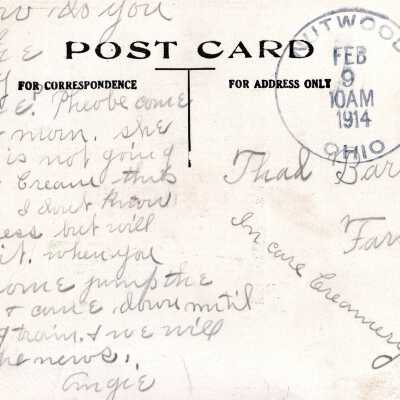 do you
POST CARD
FOR CORRESPONDENCE
FOR ADDRESS ONLY
UITWOOD
FEB
9
10AM
1914
OHIO
Pheobe come
morn. she
is not going
Cream this
I dont know
ess but will
it. when you
come jump the
& come down until
train. & we will
he news.
Angie
Thad Bar
Far
In care Creamery